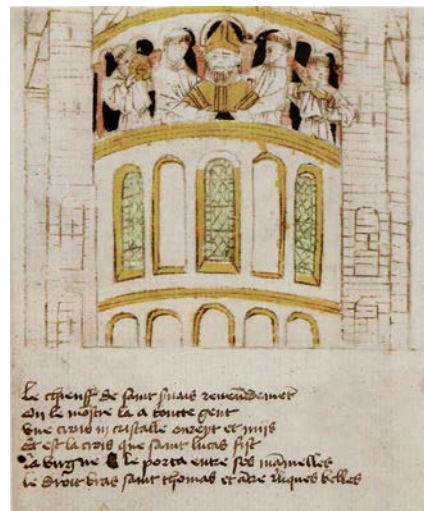 Le chieuff de saint seruais reuerendemēt
On le mostre la a toute gent
vne crois en cristalle ouurēt et mijs
Et est la crois que saint lucas fist
La virgne le porta entre ses māmelles
le droit bras saint thomas et ātre reliques belles